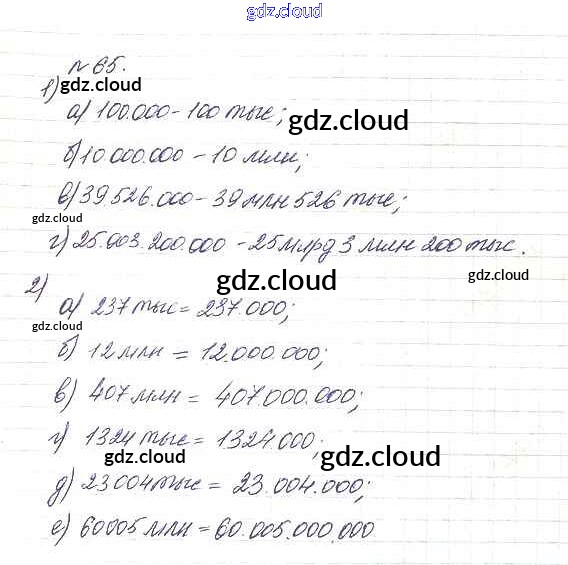 gdz.cloud
№ 65.
1) gdz.cloud
а) 100.000 - 100 тыс;
gdz.cloud
б) 10 000.000 - 10 млн;
в) 39 526.000 - 39 млн 526 тыс;
gdz.cloud
г) 25.003.200.000 - 25 млрд 3 млн 200 тыс.
2) gdz.cloud
а) 237 тыс = 237.000;
gdz.cloud
б) 12 млн = 12.000.000;
в) 407 млн = 407 000.000;
г) 1324 тыс = 1324 000;
gdz.cloud gdz.cloud
д) 23 004 тыс = 23.004.000;
е) 60005 млн = 60.005.000.000
gdz.cloud